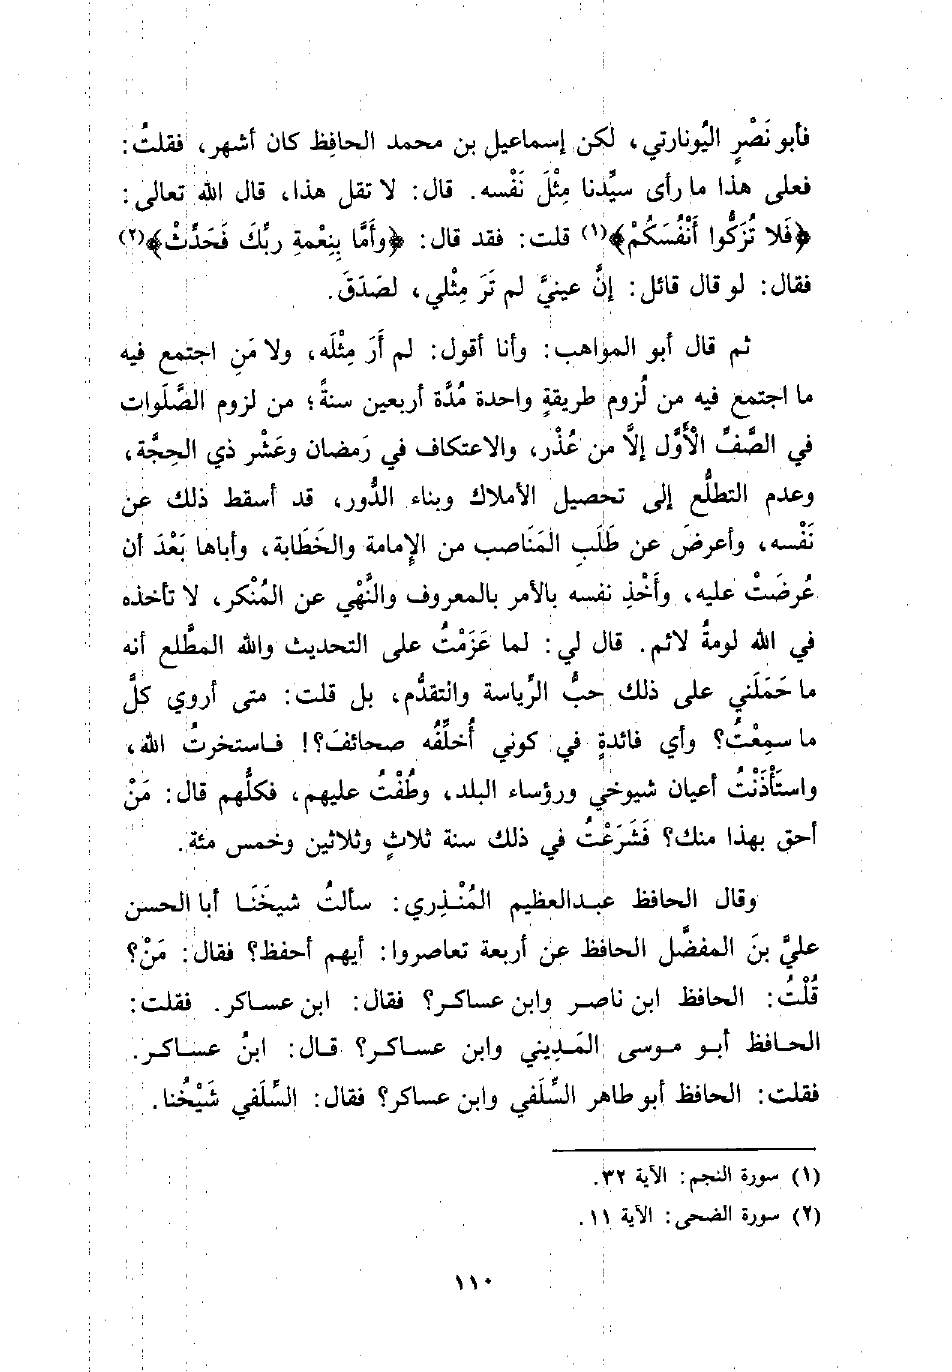 فأبو نَصْرٍ اليُونارتي، لكن إسماعيل بن محمد الحافِظ كان أشهر، فقلتُ:
فعلى هذا ما رأى سيِّدنا مِثْلَ نَفْسه. قال: لا تقل هذا، قال الله تعالى:
﴿فَلا تُزَكُّوا أَنْفُسَكُمْ﴾(١) قلت: فقد قال: ﴿وأَمَّا بِنِعْمةِ ربِّكَ فَحَدِّثْ﴾(٢)
فقال: لو قال قائل: إنَّ عينيَّ لم تَرَ مِثْلي، لصَدَقَ.
ثم قال أبو المواهب: وأنا أقول: لم أَرَ مِثْلَه، ولا مَنِ اجتمع فيه
ما اجتمع فيه من لُزوم طريقةٍ واحدة مُدَّة أربعين سنةً؛ من لزوم الصَّلَوات
في الصَّفِّ الأَوَّل إلاَّ من عُذْر، والاعتكاف في رَمضان وعَشْر ذي الحِجَّة،
وعدم التطلُّع إلى تحصيل الأملاك وبناء الدُّور، قد أسقط ذلك عن
نَفْسه، وأعرضَ عن طَلَبِ المَنَاصب من الإمامة والخَطَابة، وأباها بَعْدَ أن
عُرضَتْ عليه، وأَخْذِ نفسه بالأمر بالمعروف والنَّهْي عن المُنْكر، لا تأخذه
في الله لومةُ لائم. قال لي: لما عَزَمْتُ على التحديث والله المطَّلع أنه
ما حَمَلَني على ذلك حبُّ الرِّياسة والتقدُّم، بل قلت: متى أروي كلَّ
ما سمِعْتُ؟ وأي فائدةٍ في كوني أُخلِّفُه صحائفَ؟! فاستخرتُ الله،
واستَأْذَنْتُ أعيان شيوخي ورؤساء البلد، وطُفْتُ عليهم، فكلُّهم قال: مَنْ
أحق بهذا منك؟ فَشَرَعْتُ في ذلك سنة ثلاثٍ وثلاثين وخمس مئة.
وقال الحافظ عبدالعظيم المُنْذري: سألتُ شيخَنَا أبا الحسن
عليَّ بنَ المفضَّل الحافظَ عن أربعة تعاصروا: أيهم أحفظ؟ فقال: مَنْ؟
قُلْتُ: الحافظ ابن ناصر وابن عساكر؟ فقال: ابن عساكر. فقلت:
الحافظ أبو موسى المَديني وابن عساكر؟ قال: ابنُ عساكر.
فقلت: الحافظ أبو طاهر السِّلَفي وابن عساكر؟ فقال: السِّلَفي شَيْخُنا.
(١) سورة النجم: الآية ٣٢.
(٢) سورة الضحى: الآية ١١.
١١٠